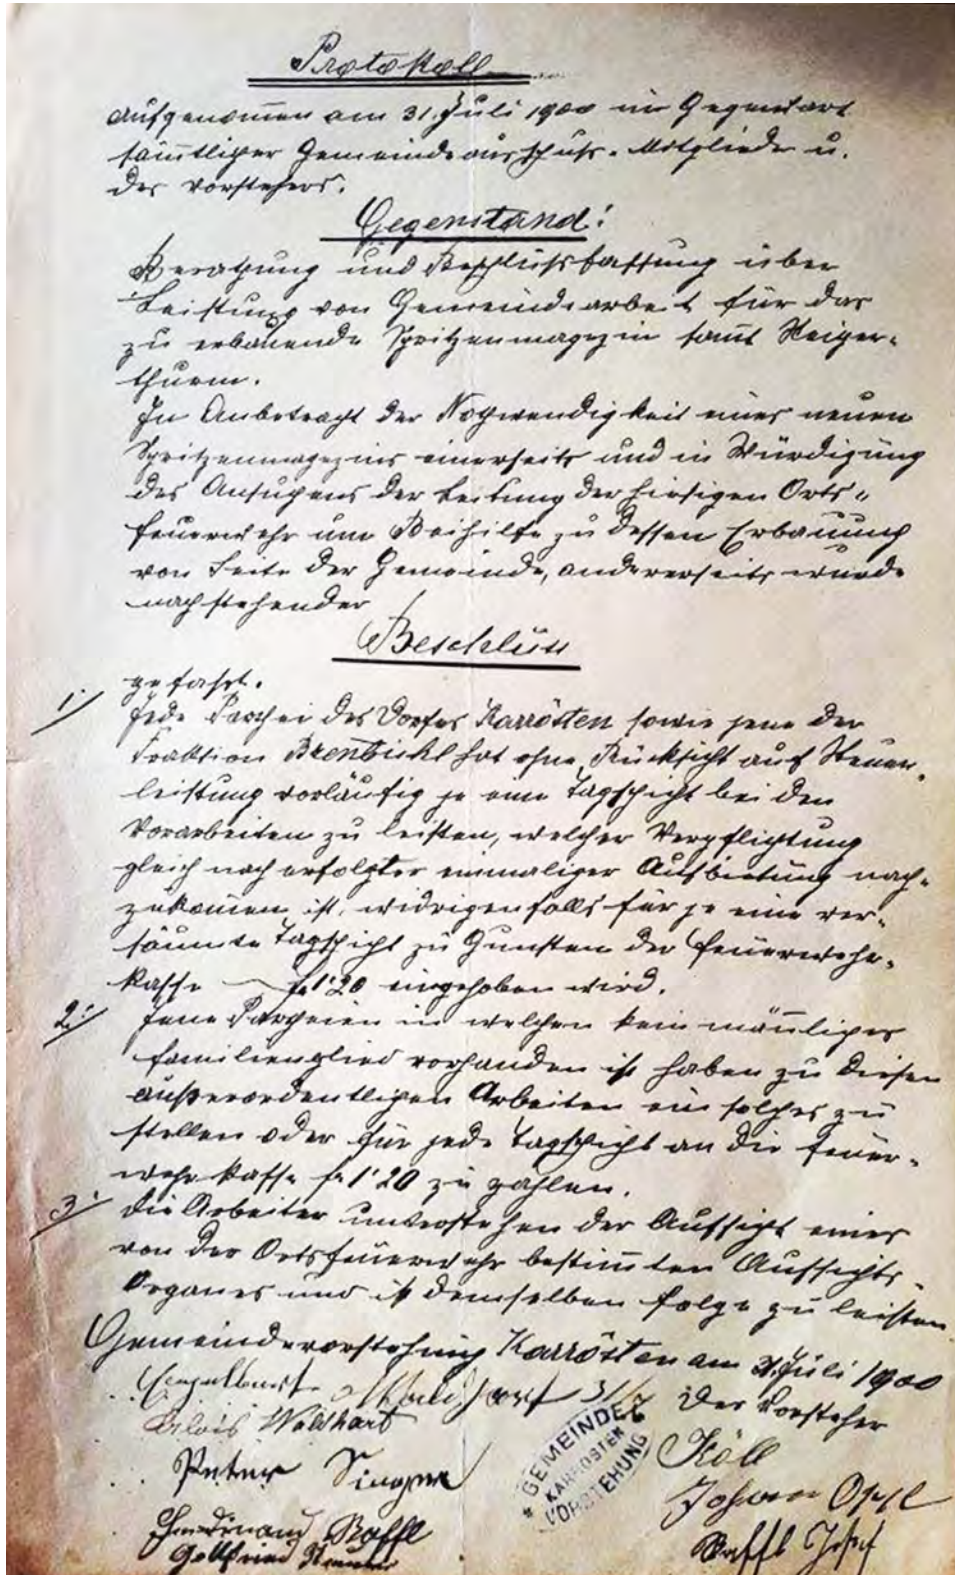 Protokoll
aufgenom̄en am 31. Juli 1900 in Gegenwart
säm̄tlicher Gemeindeausschuss-Mitglieder u.
des Vorstehers.
Gegenstand:
Berathung und Beschlußfassung über
Leistung von Gemeindearbeit für das
zu erbauende Spritzenmagazin sam̄t Steiger-
thurm.
In Anbetracht der Nothwendigkeit eines neuen
Spritzenmagazins einerseits und in Würdigung
des Ansuchens der Leitung der hiesigen Orts-
feuerwehr um Beihilfe zu dessen Erbauung
von Seite der Gemeinde, andererseits wurde
nachstehender
Beschluss
gefasst.
1. Jede Parthei des Dorfes Karrösten sowie jene der
Fraktion Brennbichl hat ohne Rücksicht auf Steuer-
leistung vorläufig je eine Tagschicht bei den
Vorarbeiten zu leisten, welcher Verpflichtung
gleich nach erfolgter einmaliger Aufbietung nach-
zukom̄en ist, widrigenfalls für je eine ver-
säumte Tagschicht zu Gunsten der Feuerwehr-
kasse fl 1·20 eingehoben wird.
2. Jene Partheien in welchen kein män̄liches
Familienglied vorhanden ist haben zu diesen
außerordentlichen Arbeiten ein solches zu
stellen oder für jede Tagschicht an die Feuer-
wehrkasse fl 1·20 zu zahlen.
3. Die Arbeiter unterstehen der Aufsicht eines
von der Ortsfeuerwehr bestim̄ten Aufsichts-
Organes und ist demselben Folge zu leisten.
Gemeindevorstehung Karrösten am 31. Juli 1900
Engelbert 31/7 Der Vorsteher
Alois Waldhart
GEMEINDE
KARRÖSTEN
VORSTEHUNG
Köll
Peter Singer
Johann Oppl
Ferdinand Raffl
Raffl Josef
Gottfried